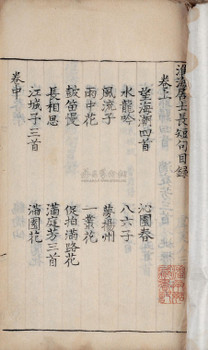 淮海居士長短句目錄
卷上
望海潮四首　沁園春
水龍吟　八六子
風流子　夢揚州
雨中花　一叢花
鼓笛慢　促拍滿路花
長相思　滿庭芳三首
江城子三首　滿園花
卷中